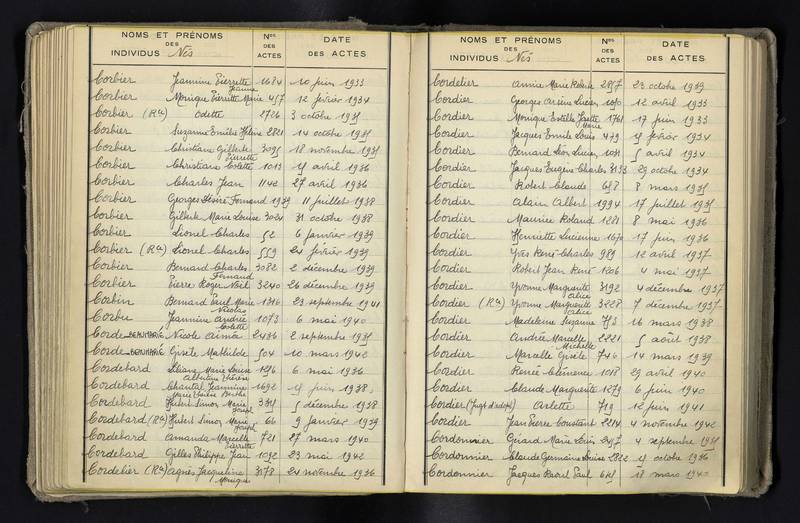 NOMS ET PRÉNOMS DES INDIVIDUS Nés | Nos DES ACTES | DATE DES ACTES
Corbier Jeannine Pierrette Jeanne 1684 10 juin 1933
Corbier Monique Pierrette Marie 457 12 février 1934
Corbier (Rce) Odette 2726 3 octobre 1935
Corbier Suzanne Emilie Hélène 2821 14 octobre 1935
Corbier Christiane Gilberte 3095 18 novembre 1935
Corbier Christiane Colette Pierrette 1013 avril 1936
Corbier Charles Jean 1142 27 avril 1936
Corbier Georges Désiré Fernand 1939 11 juillet 1938
Corbier Gilberte Marie Louise 3024 31 octobre 1938
Corbier Lionel Charles 52 6 janvier 1939
Corbier (Rce) Lionel Charles 559 24 février 1939
Corbier Bernard Charles Fernand 3082 2 décembre 1939
Corbier Pierre Roger Noël 3240 26 décembre 1939
Corbin Bernard Paul Marie Nicolas 1316 23 septembre 1941
Corbu Jeannine Andrée Colette 1073 6 mai 1940
Corde-BEAUMARIE Nicole Anna 2436 2 septembre 1935
Corde-BEAUMARIE Gisèle Mathilde 504 10 mars 1942
Cordebard Liliane Marie Louise Albertine Thérèse 1216 6 mai 1936
Cordebard Chantal Jeannine Marie Thérèse Berthe 1692 juin 1938
Cordebard Hubert Simon Marie Joseph décembre 1938
Cordebard (Rce) Hubert Simon Marie Joseph 66 9 janvier 1939
Cordebard Amanda Marcelle Pierrette 721 27 mars 1940
Cordebard Gilles Philippe Jean 1092 23 mai 1942
Cordelier (Rce) Agnès Jacqueline Monique 3178 24 novembre 1936
NOMS ET PRÉNOMS DES INDIVIDUS Nés | Nos DES ACTES | DATE DES ACTES
Cordelier Annie Marie Roberte 2857 23 octobre 1939
Cordier Georges Arsène Lucien 1070 12 avril 1933
Cordier Monique Estelle Josette Marie 1761 17 juin 1933
Cordier Jacques Emile Louis 479 février 1934
Cordier Bernard Léon Lucien 1031 5 avril 1934
Cordier Jacques Eugène Charles 3133 29 octobre 1934
Cordier Robert Claude 658 8 mars 1935
Cordier Alain Albert 1994 17 juillet 1935
Cordier Maurice Roland 1221 8 mai 1936
Cordier Henriette Lucienne 1670 17 juin 1936
Cordier Yves René Charles 989 12 avril 1937
Cordier Robert Jean René 1206 4 mai 1937
Cordier Yvonne Marguerite Alice 3192 4 décembre 1937
Cordier (Rce) Yvonne Marguerite Alice 3228 7 décembre 1937
Cordier Madeleine Suzanne 753 16 mars 1938
Cordier Andrée Marcelle Michelle 2221 5 août 1938
Cordier Marcelle Gisèle 746 14 mars 1939
Cordier Renée Clémence 1018 29 avril 1940
Cordier Claude Marguerite 1279 6 juin 1940
Cordier (Jugt d'adopt) Arlette 719 12 juin 1941
Cordier Jean Pierre Constant 2214 4 novembre 1942
Cordonnier Gérard Marie Louis 2457 4 septembre 1935
Cordonnier Claude Germaine Louise 2822 octobre 1936
Cordonnier Jacques Raoul Paul 18 mars 1940